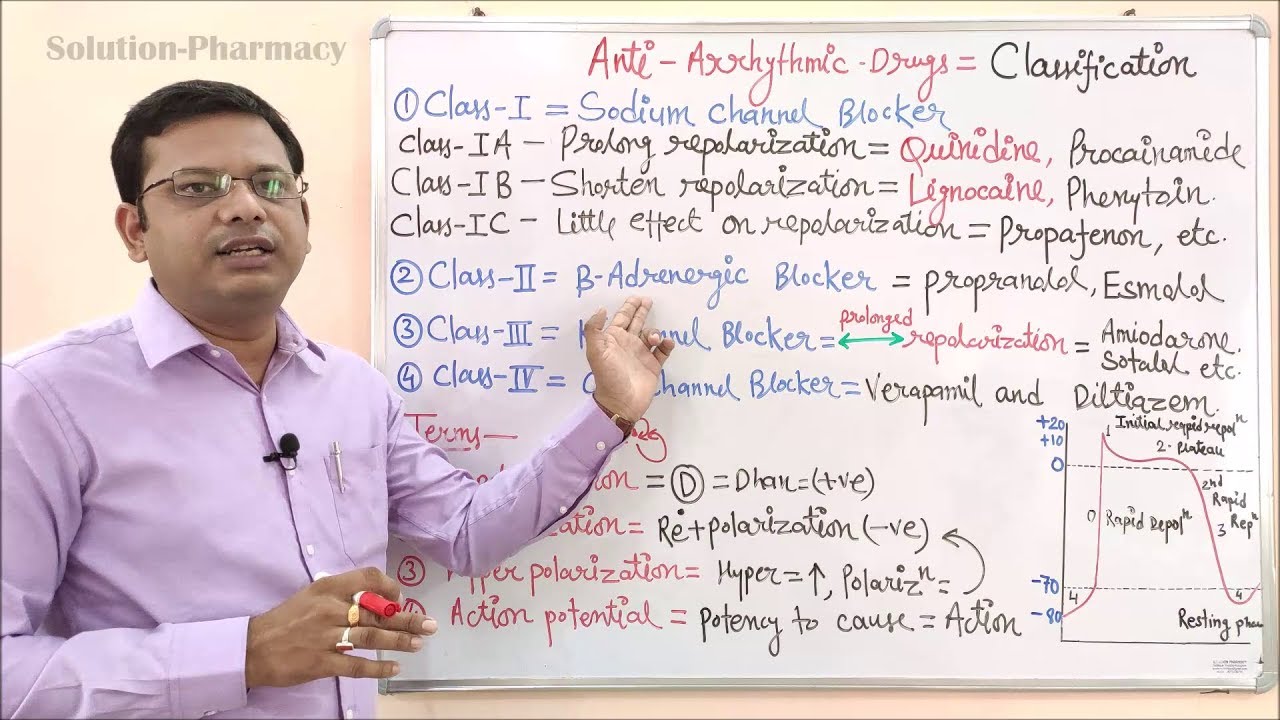 Solution-Pharmacy
Anti-Arrhythmic-Drugs = Classification
① Class-I = Sodium channel Blocker
Class-IA — Prolong repolarization = Quinidine, Procainamide
Class-IB — Shorten repolarization = Lignocaine, Phenytoin.
Class-IC — Little effect on repolarization = Propafenon, etc.
② Class-II = β-Adrenergic Blocker = propranolol, Esmolol
③ Class-III = Blocker = prolonged ↔ repolarization = Amiodarone. Sotalol etc.
④ Class-IV = channel Blocker = Verapamil and Diltiazem.
Terms—
= Ⓓ = Dhan = (+ve)
= Re + polarization (-ve)
③ Hyper polarization = Hyper = ↑, Polarizⁿ =
Action potential = potency to cause = Action
+20
+10
0
-70
-80
1 Initial rapid repolⁿ
2 - Plateau
0 Rapid Depolⁿ
2nd Rapid
3 Repⁿ
4
4
Resting phase